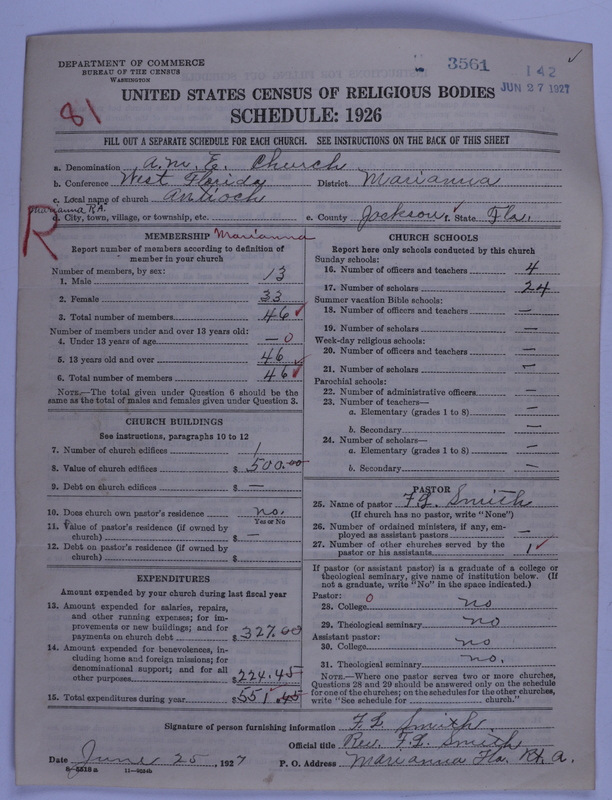 DEPARTMENT OF COMMERCE
BUREAU OF THE CENSUS
WASHINGTON
3561
142
JUN 27 1927
81
UNITED STATES CENSUS OF RELIGIOUS BODIES
SCHEDULE: 1926
FILL OUT A SEPARATE SCHEDULE FOR EACH CHURCH. SEE INSTRUCTIONS ON THE BACK OF THIS SHEET
a. Denomination A.M.E. Church
b. Conference West Florida District Marianna
c. Local name of church Antioch
Marianna R.A.
R
d. City, town, village, or township, etc. e. County Jackson f. State Fla.
MEMBERSHIP Marianna
Report number of members according to definition of
member in your church
Number of members, by sex:
1. Male 13
2. Female 33
3. Total number of members 46
Number of members under and over 13 years old:
4. Under 13 years of age — 0
5. 13 years old and over 46
6. Total number of members 46
NOTE.—The total given under Question 6 should be the
same as the total of males and females given under Question 3.
CHURCH BUILDINGS
See instructions, paragraphs 10 to 12
7. Number of church edifices 1
8. Value of church edifices $ 500.00
9. Debt on church edifices $ —
10. Does church own pastor's residence no.
Yes or No
11. Value of pastor's residence (if owned by
church) $ —
12. Debt on pastor's residence (if owned by
church) $
EXPENDITURES
Amount expended by your church during last fiscal year
13. Amount expended for salaries, repairs,
and other running expenses; for im-
provements or new buildings; and for
payments on church debt $ 327.00
14. Amount expended for benevolences, in-
cluding home and foreign missions; for
denominational support; and for all
other purposes $ 224.45
15. Total expenditures during year $ 551.45
CHURCH SCHOOLS
Report here only schools conducted by this church
Sunday schools:
16. Number of officers and teachers 4
17. Number of scholars 24
Summer vacation Bible schools:
18. Number of officers and teachers —
19. Number of scholars —
Week-day religious schools:
20. Number of officers and teachers —
21. Number of scholars —
Parochial schools:
22. Number of administrative officers —
23. Number of teachers—
a. Elementary (grades 1 to 8) —
b. Secondary —
24. Number of scholars—
a. Elementary (grades 1 to 8) —
b. Secondary —
PASTOR
25. Name of pastor F.L. Smith
(If church has no pastor, write "None")
26. Number of ordained ministers, if any, em-
ployed as assistant pastors —
27. Number of other churches served by the
pastor or his assistants 1
If pastor (or assistant pastor) is a graduate of a college or
theological seminary, give name of institution below. (If
not a graduate, write "No" in the space indicated.)
Pastor: 0
28. College no
29. Theological seminary no
Assistant pastor:
30. College no
31. Theological seminary no.
NOTE.—Where one pastor serves two or more churches,
Questions 28 and 29 should be answered only on the schedule
for one of the churches; on the schedules for the other churches,
write "See schedule for church."
Signature of person furnishing information F.L. Smith
Official title Rev. F.L. Smith
Date June 25, 1927 P. O. Address Marianna Fla. Rt. A.
8—5519a 11—9524b